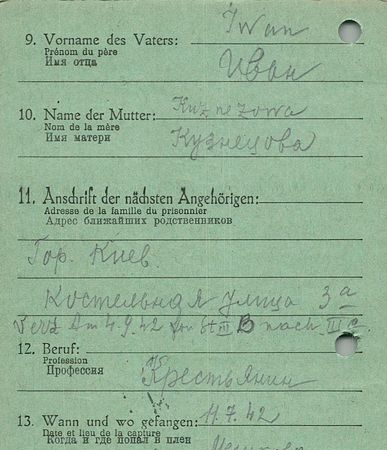 Iwan
9. Vorname des Vaters:
Prénom du père
Имя отца
Иван
Kuznezowa
10. Name der Mutter:
Nom de la mère
Имя матери
Кузнецова
11. Anschrift der nächsten Angehörigen:
Adresse de la famille du prisonnier
Адрес ближайших родственников
Гор. Киев.
Костельная улица 3а
Am 4.9.42 B nach
12. Beruf:
Profession
Профессия
Крестьянин
13. Wann und wo gefangen: 11.7.42
Date et lieu de la capture
Когда и где попал в плен